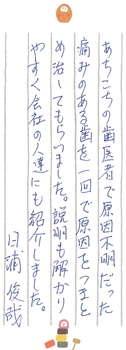 あちこちの歯医者で原因不明だった
痛みのある歯を一回で原因をつきと
め治してもらいました。説明も解かり
やすく会社の人達にも紹介しました。
日浦俊哉